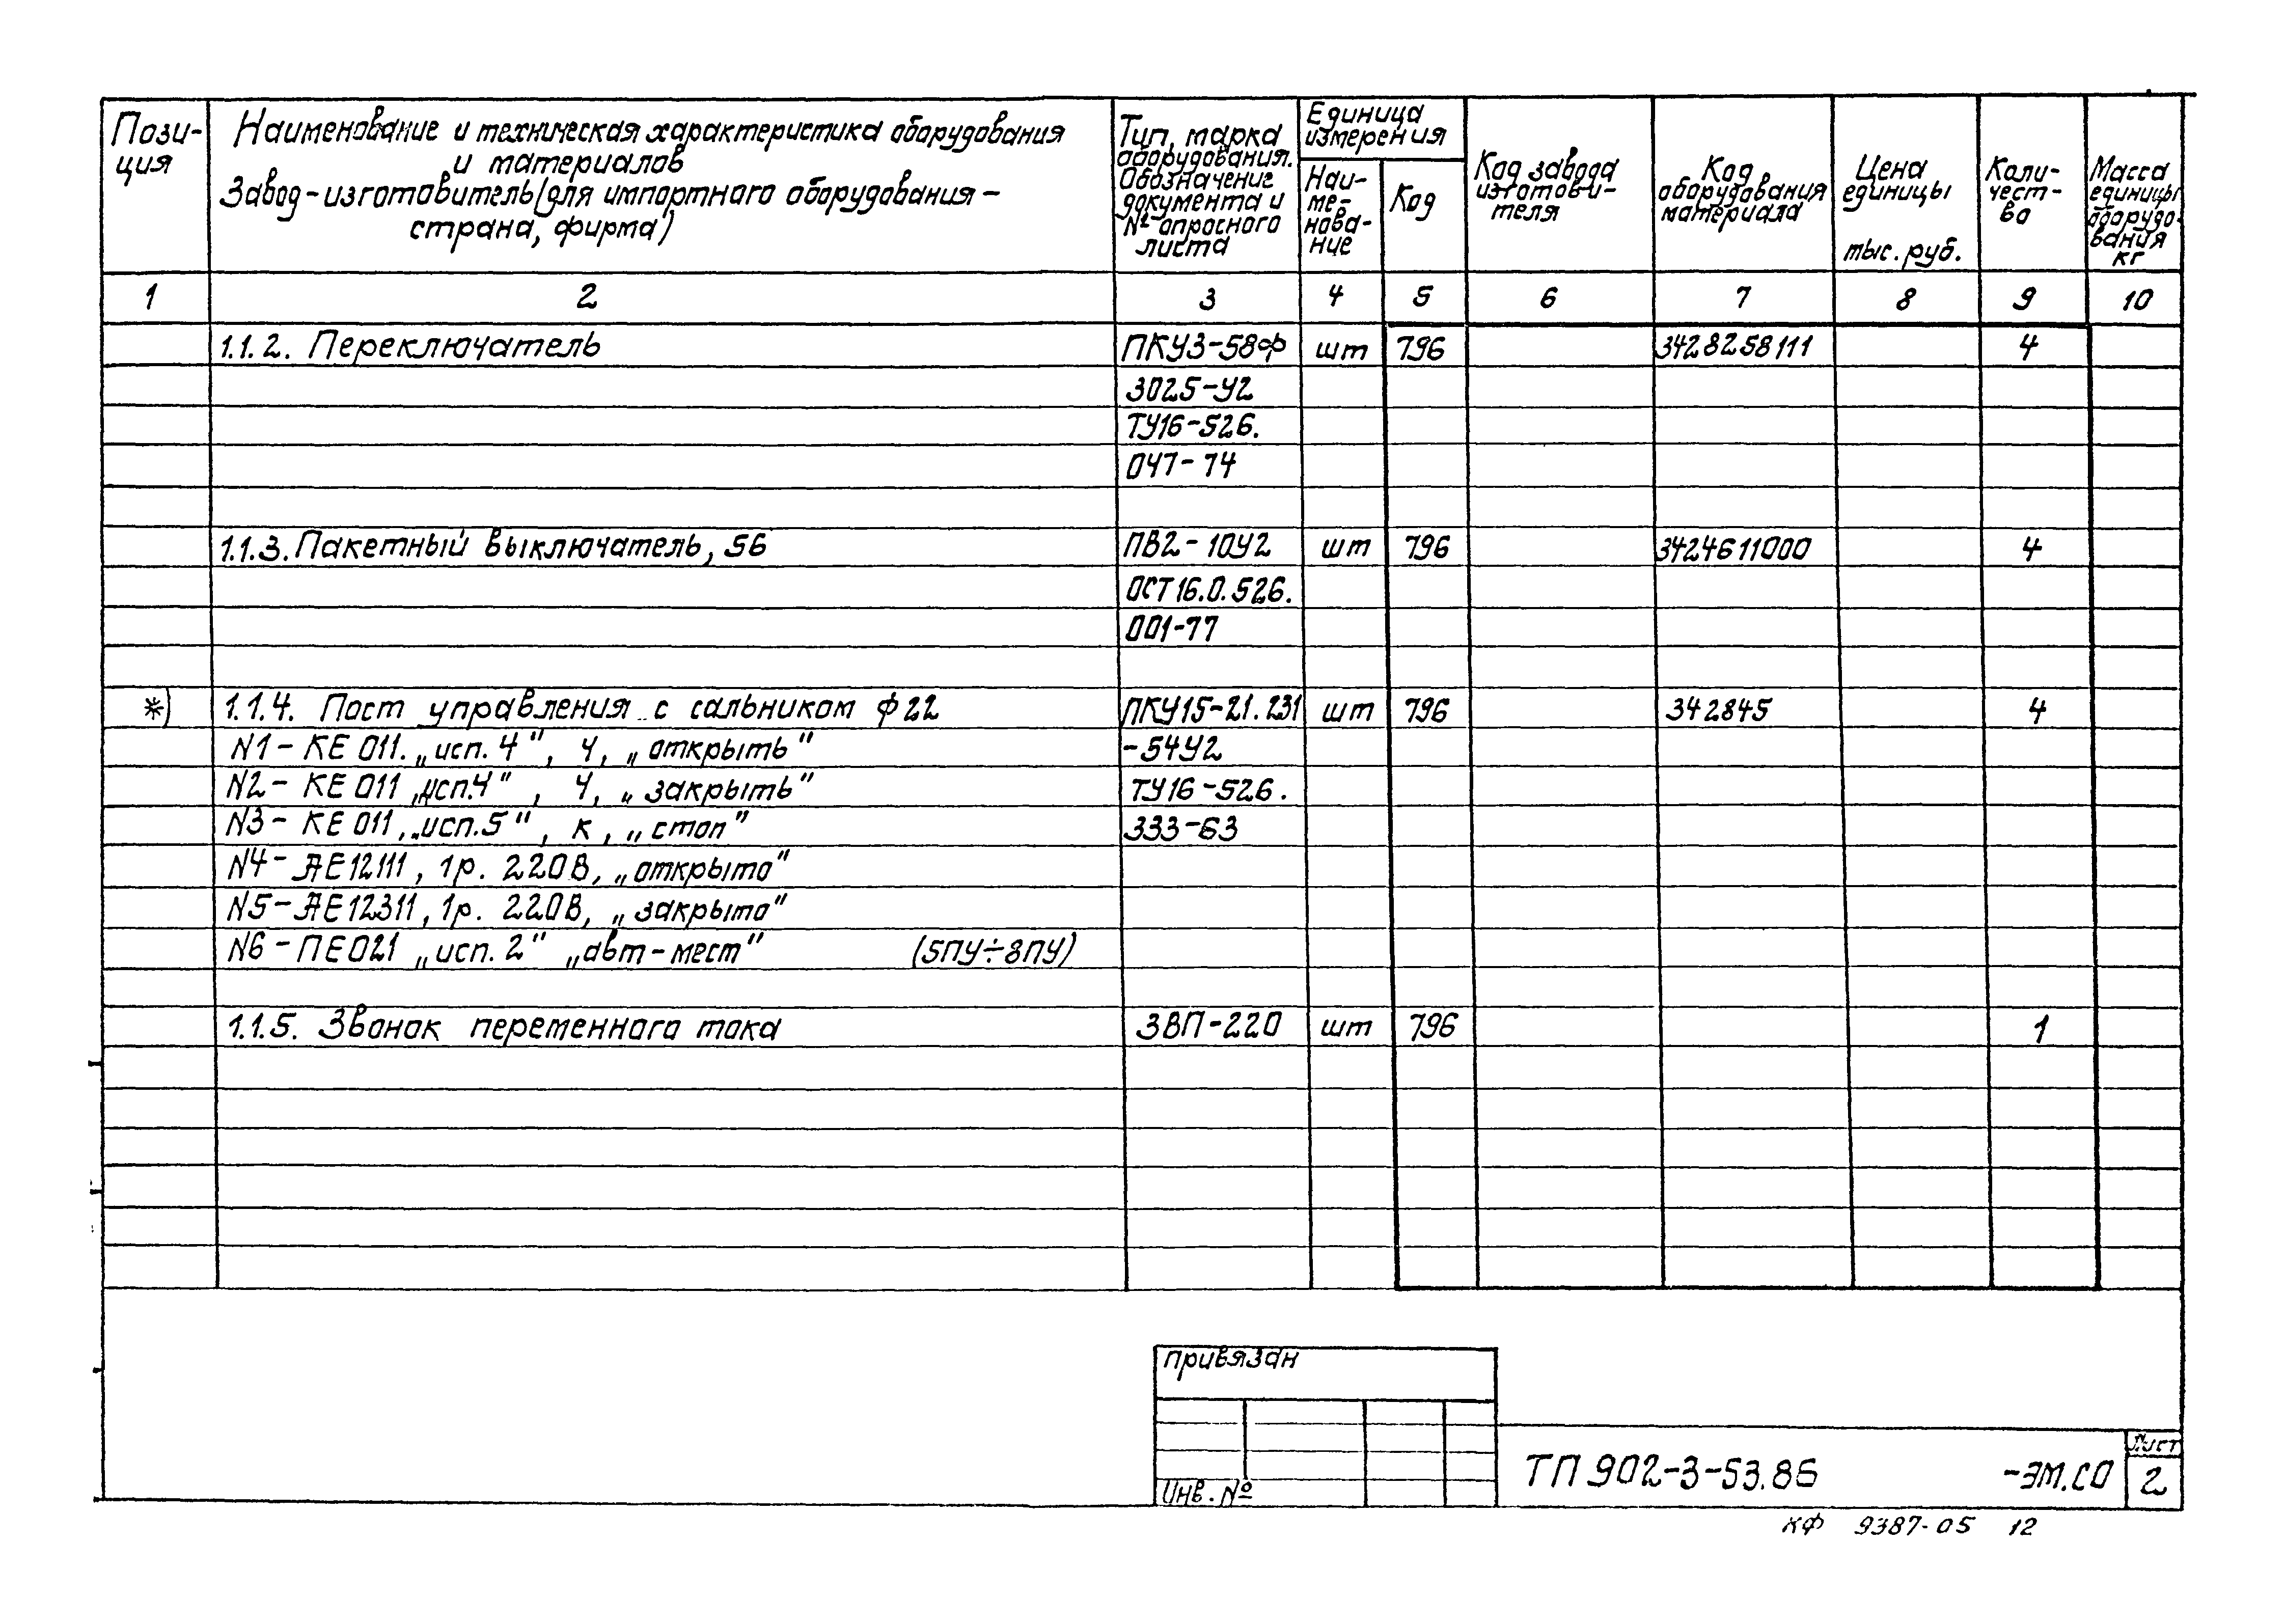 Пози-
ция
Наименование и техническая характеристика оборудования
и материалов
Завод-изготовитель (для импортного оборудования –
страна, фирма)
Тип, марка
оборудования.
Обозначение
документа и
№ опросного
листа
Единица
измерения
Наи-
ме-
нова-
ние
Код
Код завода
изготови-
теля
Код
оборудования
материала
Цена
единицы
тыс. руб.
Коли-
чест-
во
Масса
единицы
оборудо-
вания
кг
1 2 3 4 5 6 7 8 9 10
1.1.2. Переключатель ПКУ3-58Ф шт 796 3428258111 4
3025-У2
ТУ16-526.
047-74
1.1.3. Пакетный выключатель, 56 ПВ2-10У2 шт 796 3424611000 4
ОСТ16.0.526.
001-77
*) 1.1.4. Пост управления с сальником ф22 ПКУ15-21.231 шт 796 342845 4
N1- КЕ 011. „исп. 4", Ч, „открыть" -54У2
N2- КЕ 011 „исп.4", Ч, „закрыть" ТУ16-526.
N3- КЕ 011, „исп.5", к, „стоп" 333-63
N4- АЕ12111, 1р. 220В, „открыто"
N5- АЕ12311, 1р. 220В, „закрыто"
N6- ПЕ021 „исп. 2" „авт-мест" (5ПУ÷8ПУ)
1.1.5. Звонок переменного тока ЗВП-220 шт 796 1
привязан
Инв. №
ТП 902-3-53.86 -ЭМ.СО
Лист
2
КФ 9387-05 12